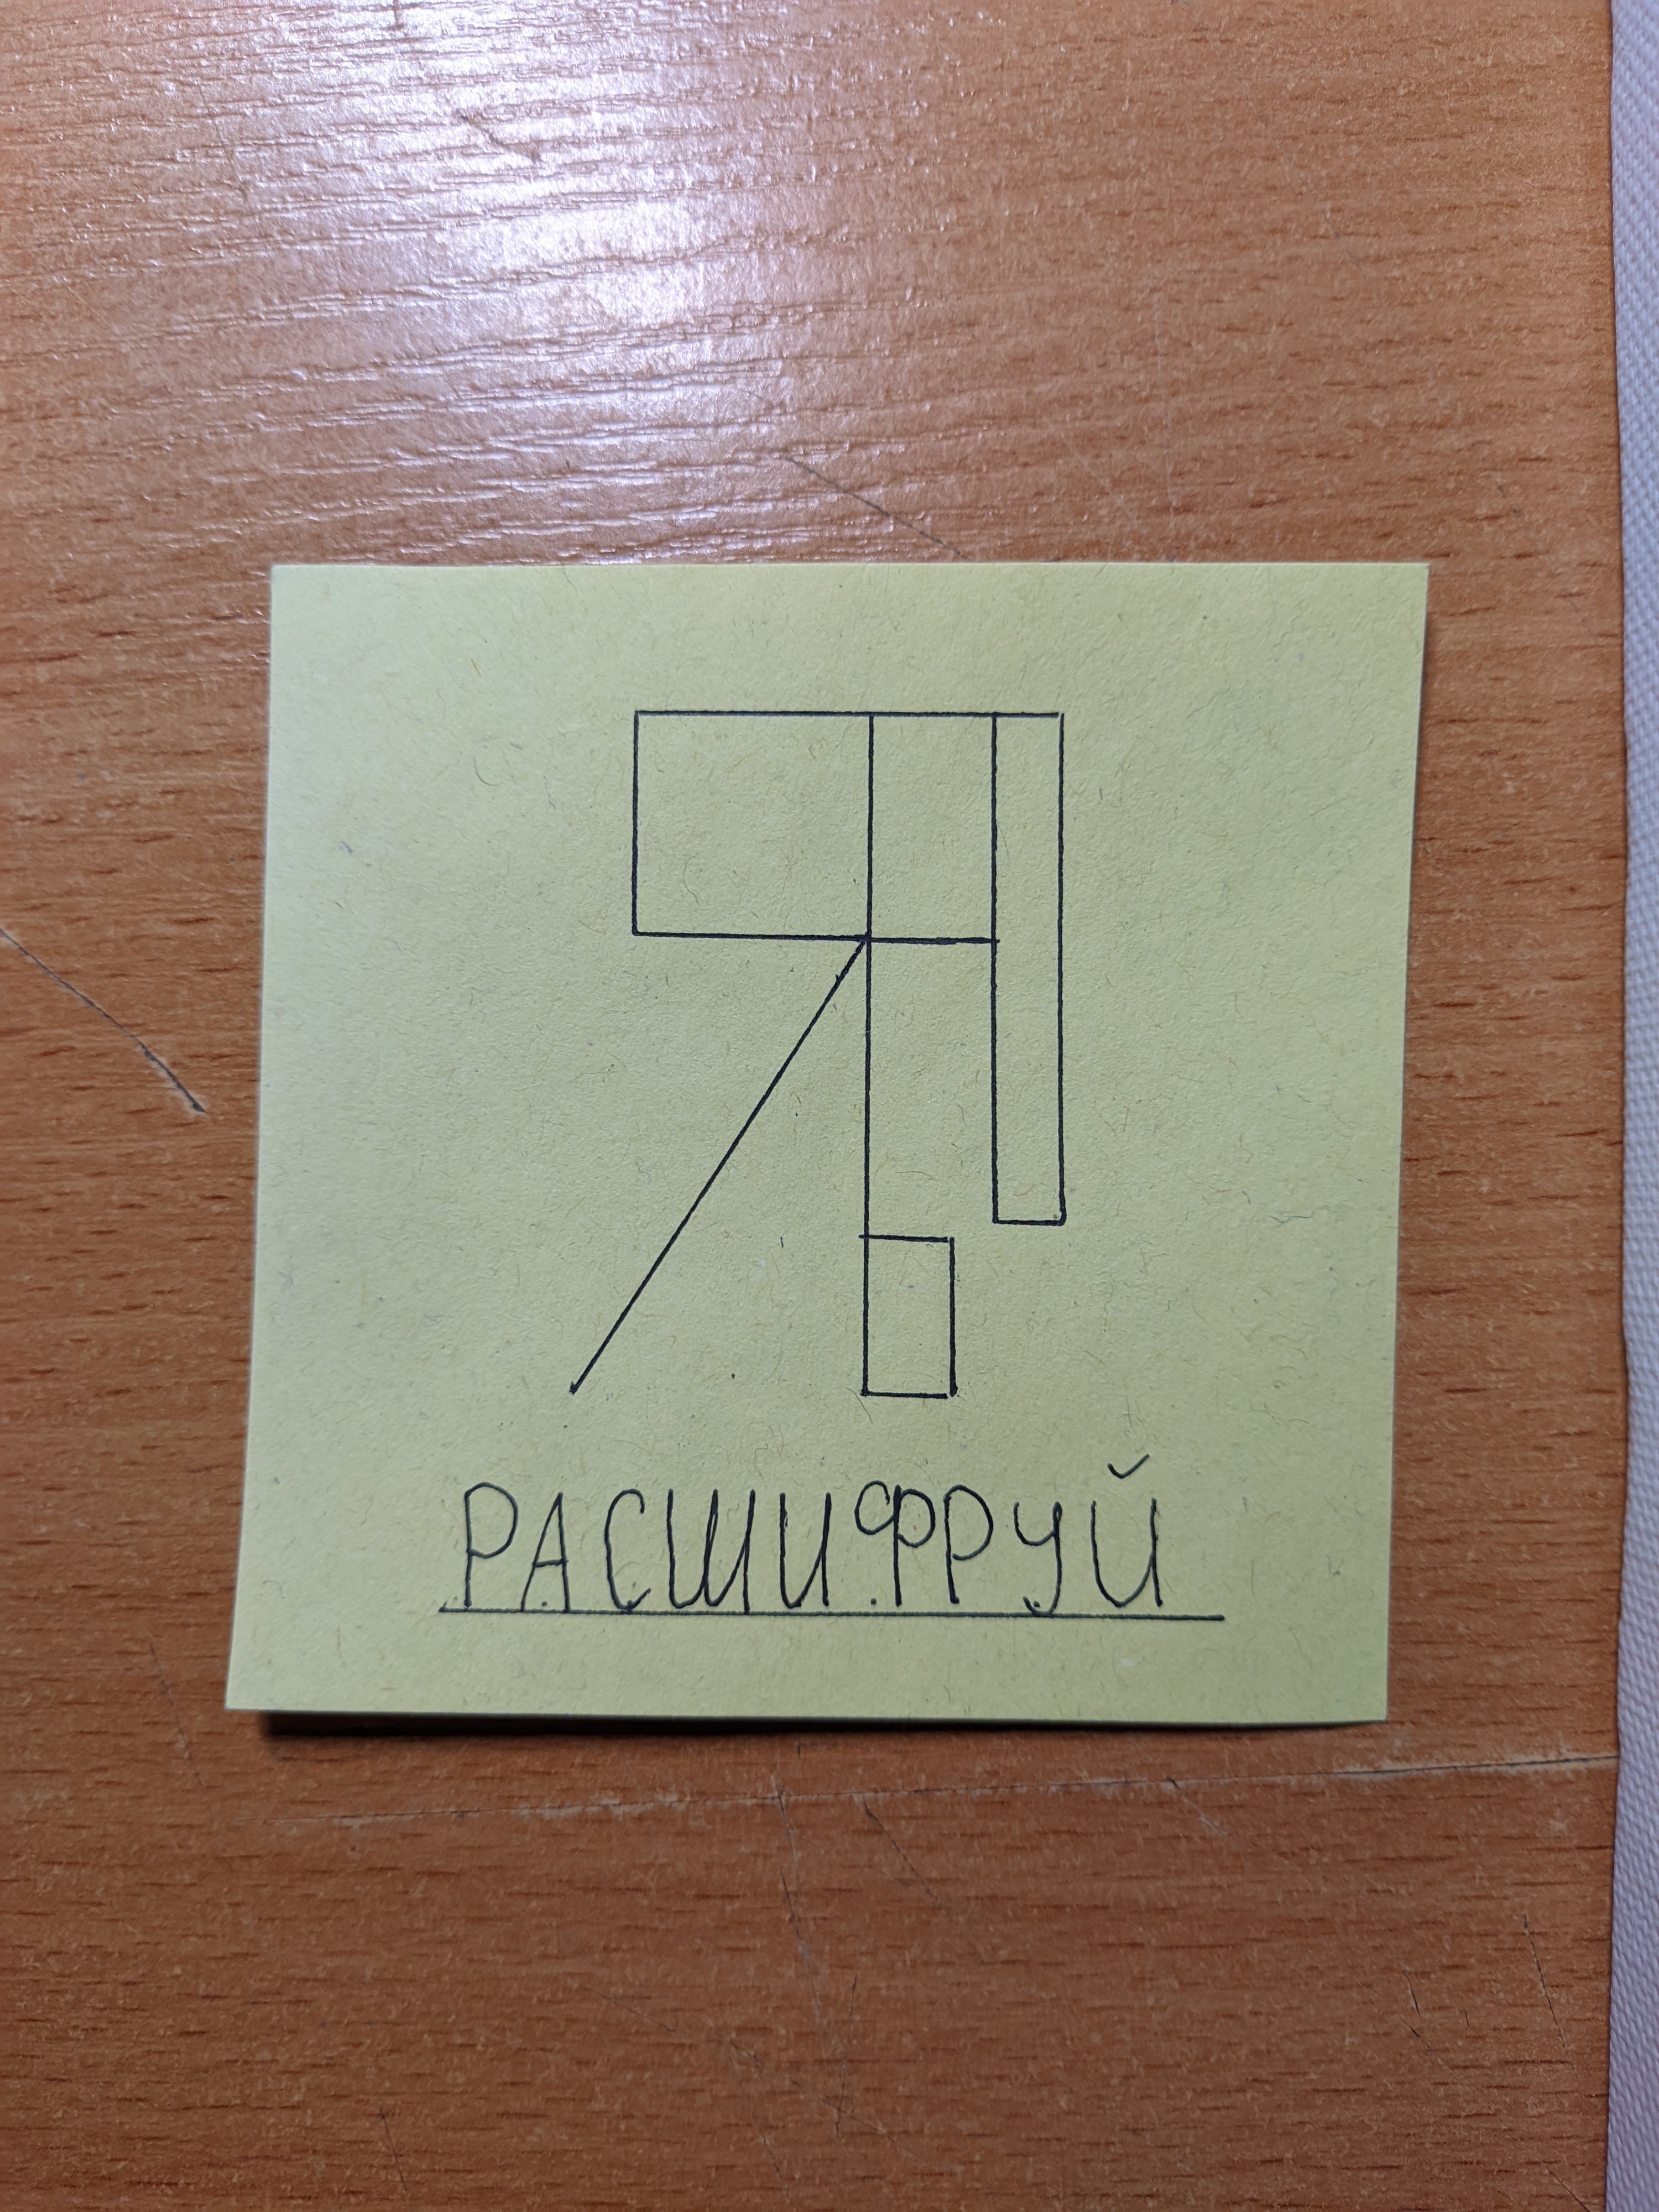 РАСШИФРУЙ